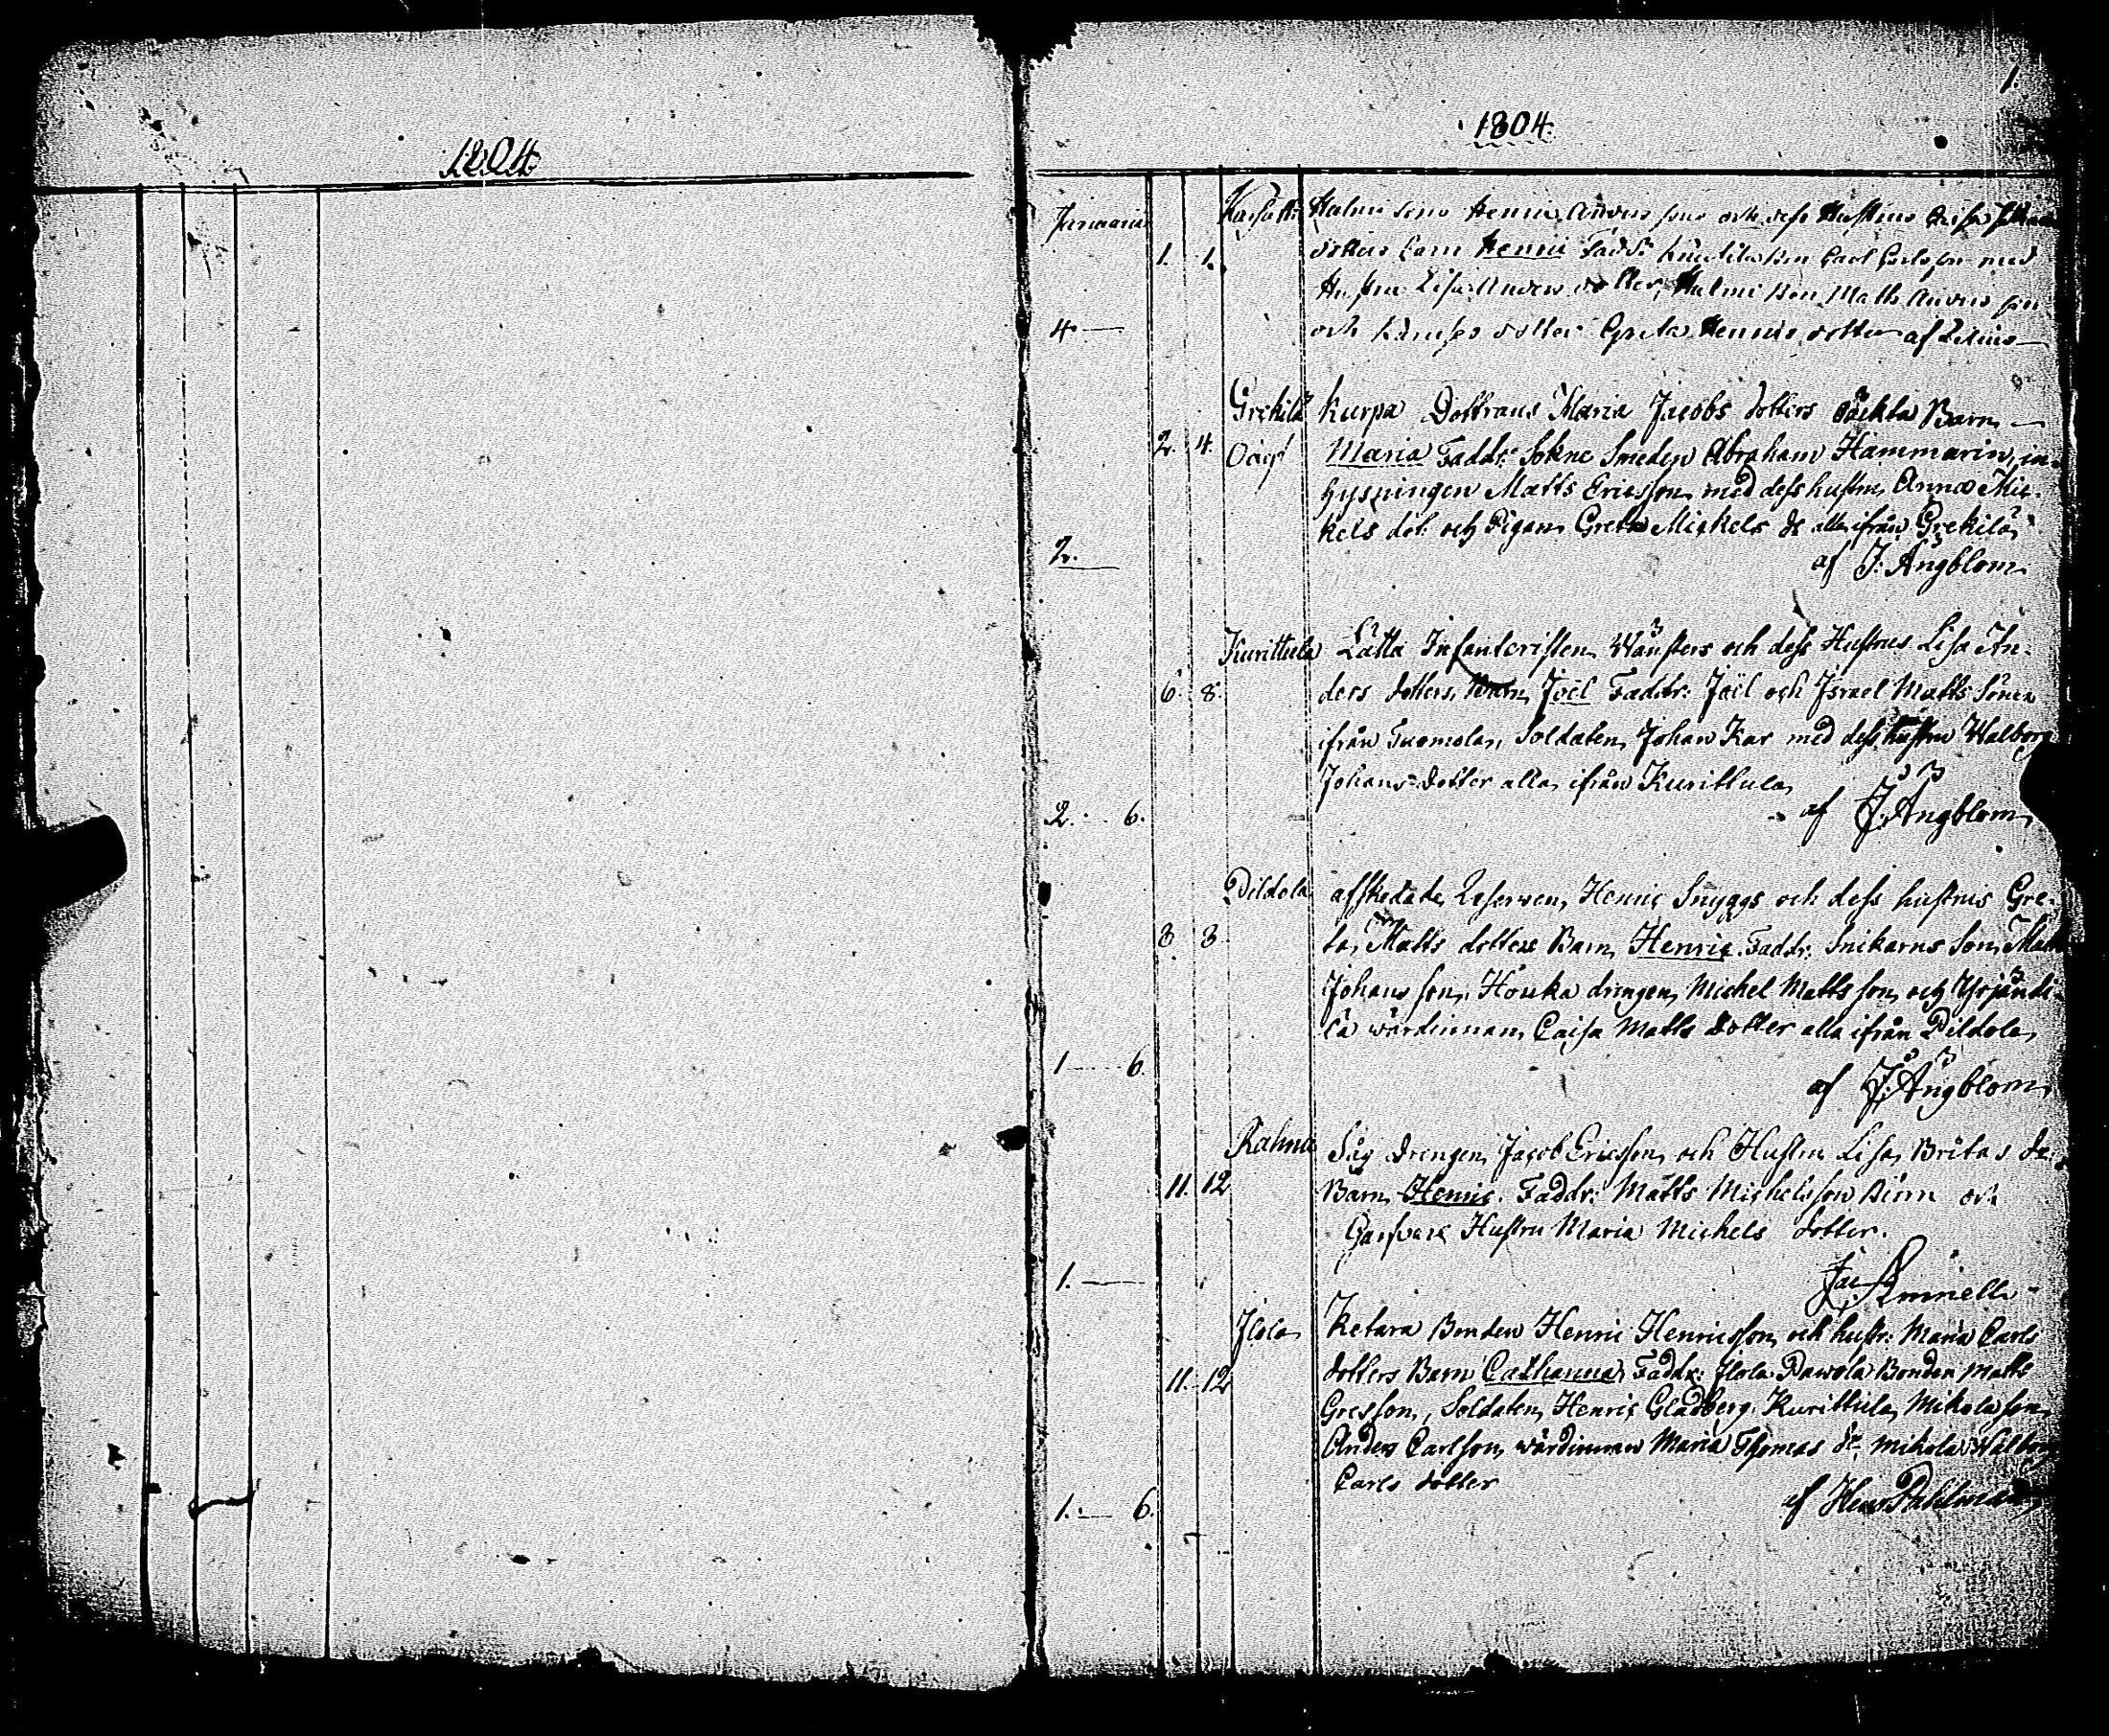 1804
1.
1804.
Januarii
Halmi sons Henric Anders sons och dess Hustrus Caisa
1. 1. dotters barn Henric Fadd: Carl Carlsson med
Hustru Lisa Anders dotter, Halmi Bon Matts Anders son
4 — och dotter Greta Henrics dotter af
Grekilä Kurpa Dottrans Maria Jacobs dotters oäckta Barn
2. 4. Oäqt Maria Faddr: Sokne Smeden Abraham Hammarin, in-
hysningen Matts Ericsson med dess hustru Anna Mic-
kels dot: och Pigan Greta Mickels dr alla ifrån Grekilä
2. — af J: Ängblom
Kurittula Lätta Infanteristen Wänsters och dess Hustrus Lisa An-
6. 8. ders dotters, Barn Joël Faddr: Joël och Israel Matts Söner
ifrån Tuomola, Soldaten Johan Kar med dess hustru Walborg
Johans dotter alla ifrån Kurittula
2. 6. af J: Ängblom
Pildola afskedade Henric Snyggs och dess hustrus Gre-
8 8 ta Matts dotters Barn Henric. Faddr: Snikarns Son
Johans son, Houka drengen Michel Matts son och
lä wärdinnan Caisa Matts dotter alla ifrån Pildola
1 — 6. af J: Ängblom
Rahna Såg Drengen Jacob Ericsson och Hustru Lisa Britas dr
11. 12 Barn Henric. Faddr: Matts Michelsson och
Hustru Maria Michels dotter.
1. — Jac:
Ilola Ketara Bonden Henric Henricsson och hustr: Maria Carls
11. 12 dotters Barn Catharina Faddr: Ilola Pawola Bonden Matts
Gresson, Soldaten Henric Gladberg. Kurittula Mikola son
Anders Carlson, wärdinnan Maria Thomas dr Mikola Walborg
Carls dotter
1. — 6. af Henr Pahlman